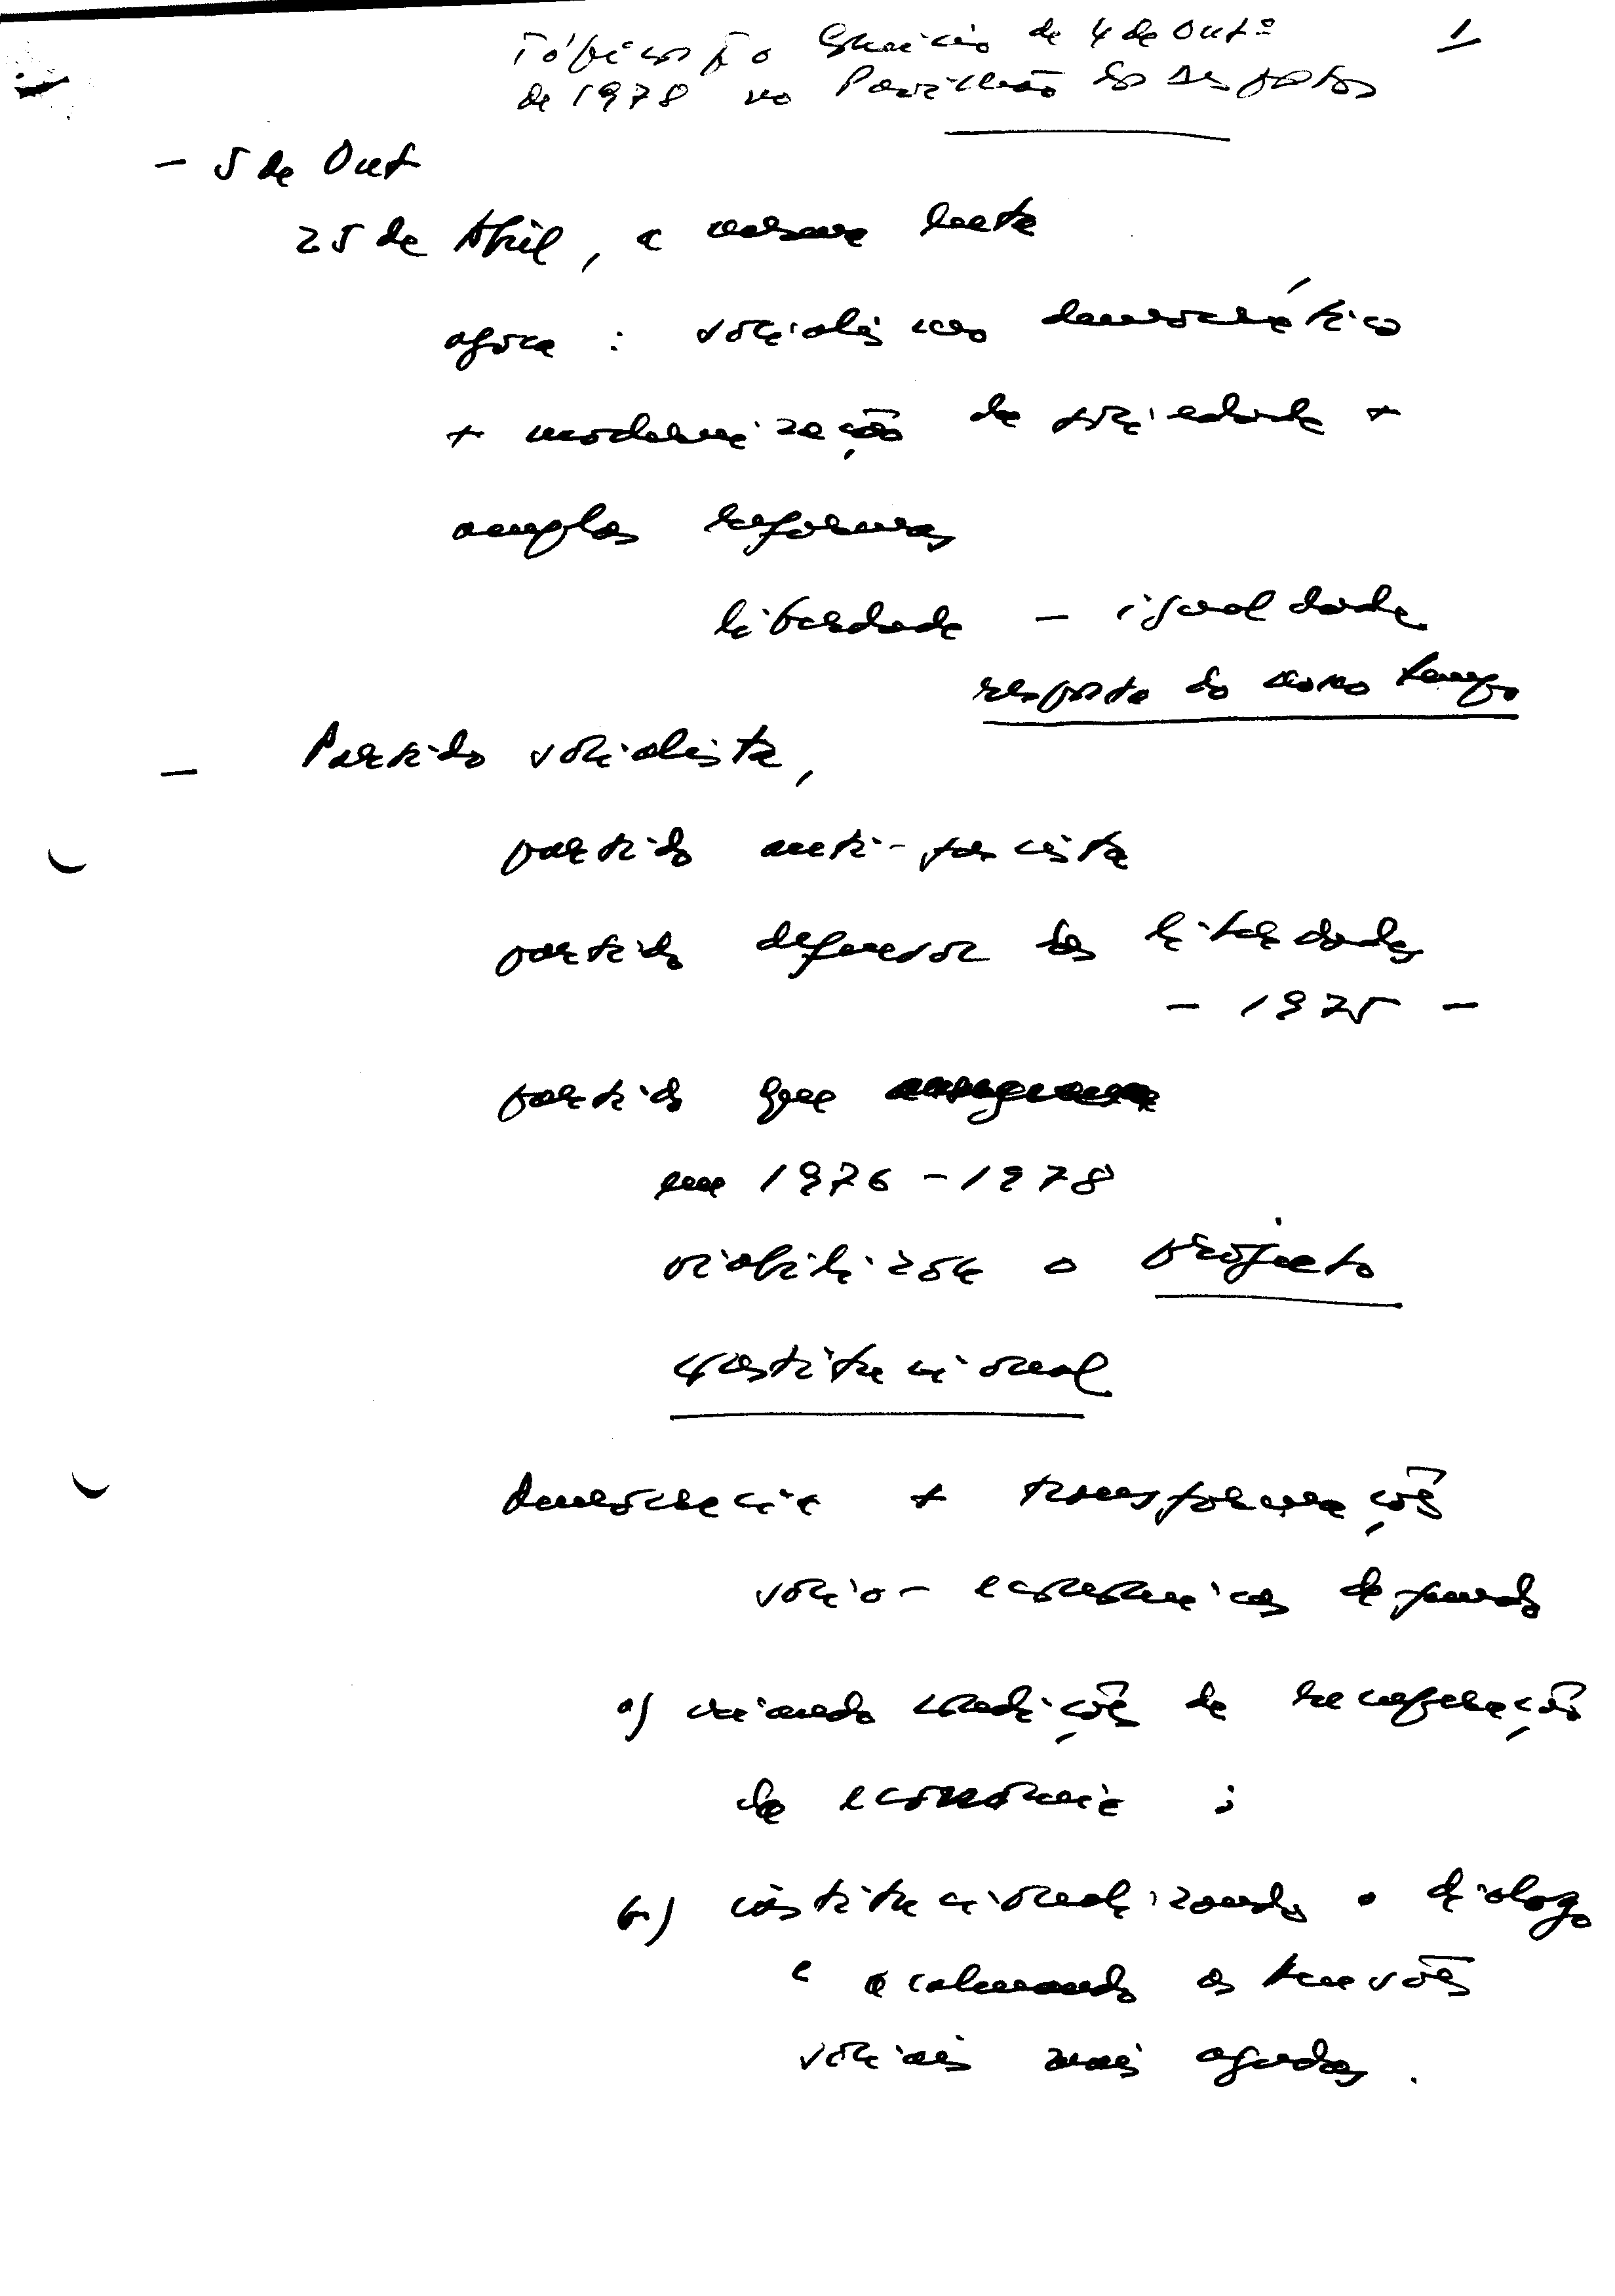 Tópicos p. o Comício de 4 de Outº 1
de 1978 no Pavilhão dos Desportos
- 5 de Out
25 de Abril, a mesma luta
agora : socialismo democrático
+ modernização da sociedade +
amplas reformas
liberdade - igualdade
resposta do nosso tempo
- Partido socialista,
partido anti-fascista
partido defensor das liberdades
- 1975 -
partido que
em 1976 - 1978
viabiliza o projecto
constitucional
democracia + transformações
socio-economicas de fundo
a) criando condições de recuperação
da economia ;
b) institucionalizando o diálogo
e acalmando as tensões
sociais mais agudas.